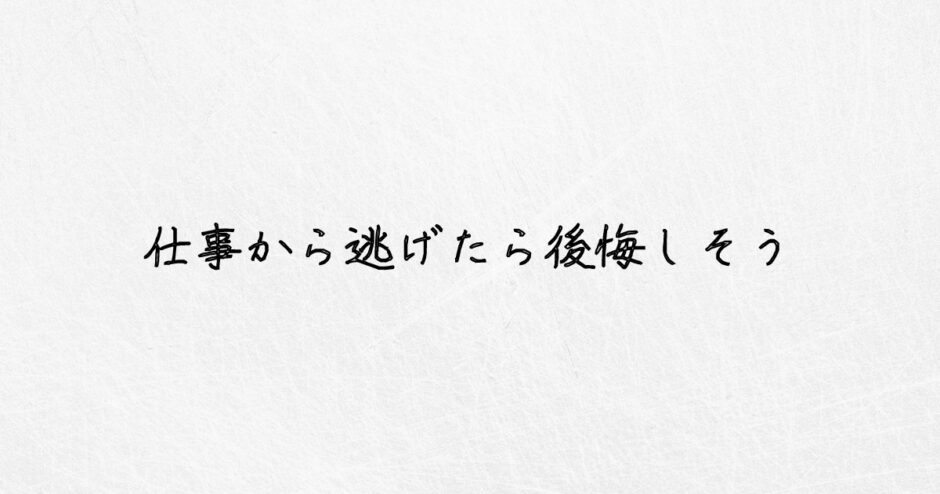 仕事から逃げたら後悔しそう